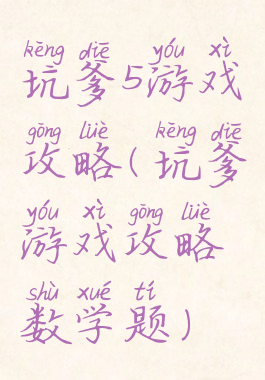 kēng diē yóu xì
坑爹5游戏
gōng lüè kēng diē
攻略(坑爹
yóu xì gōng lüè
游戏攻略
shù xué tí
数学题)